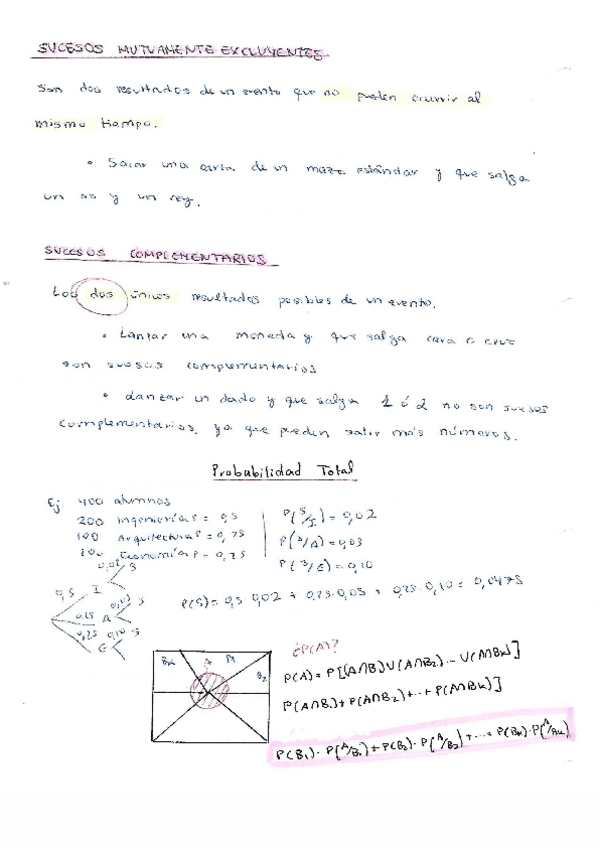 SUCESOS MUTUAMENTE EXCLUYENTES
Son dos resultados de un evento que no pueden ocurrir al
mismo tiempo.
• Sacar una carta de un mazo estándar y que salga
un as y un rey.
SUCESOS COMPLEMENTARIOS
Los dos únicos resultados posibles de un evento.
• Lanzar una moneda y que salga cara o cruz
son sucesos complementarios
• Lanzar un dado y que salga 1 ó 2 no son sucesos
complementarios, ya que pueden salir más números.
Probabilidad Total
Ej 400 alumnos
200 Ingeniería P = 0,5
100 Arquitectura P = 0,25
100 Economía P = 0,25
P(S/I) = 0,02
P(S/A) = 0,03
P(S/E) = 0,10
0,5 I 0,02 S
0,25 A 0,03 S
0,25 E 0,10 S
P(S) = 0,5 · 0,02 + 0,25 · 0,03 + 0,25 · 0,10 = 0,0475
Bk A B1 B2
¿P(A)?
P(A) = P[(A∩B)U(A∩B2)... U(A∩Bk)]
P(A∩B1)+P(A∩B2)+...+P(A∩Bk)]
P(B1)·P(A/B1)+P(B2)·P(A/B2)+...+P(Bk)·P(A/Bk)